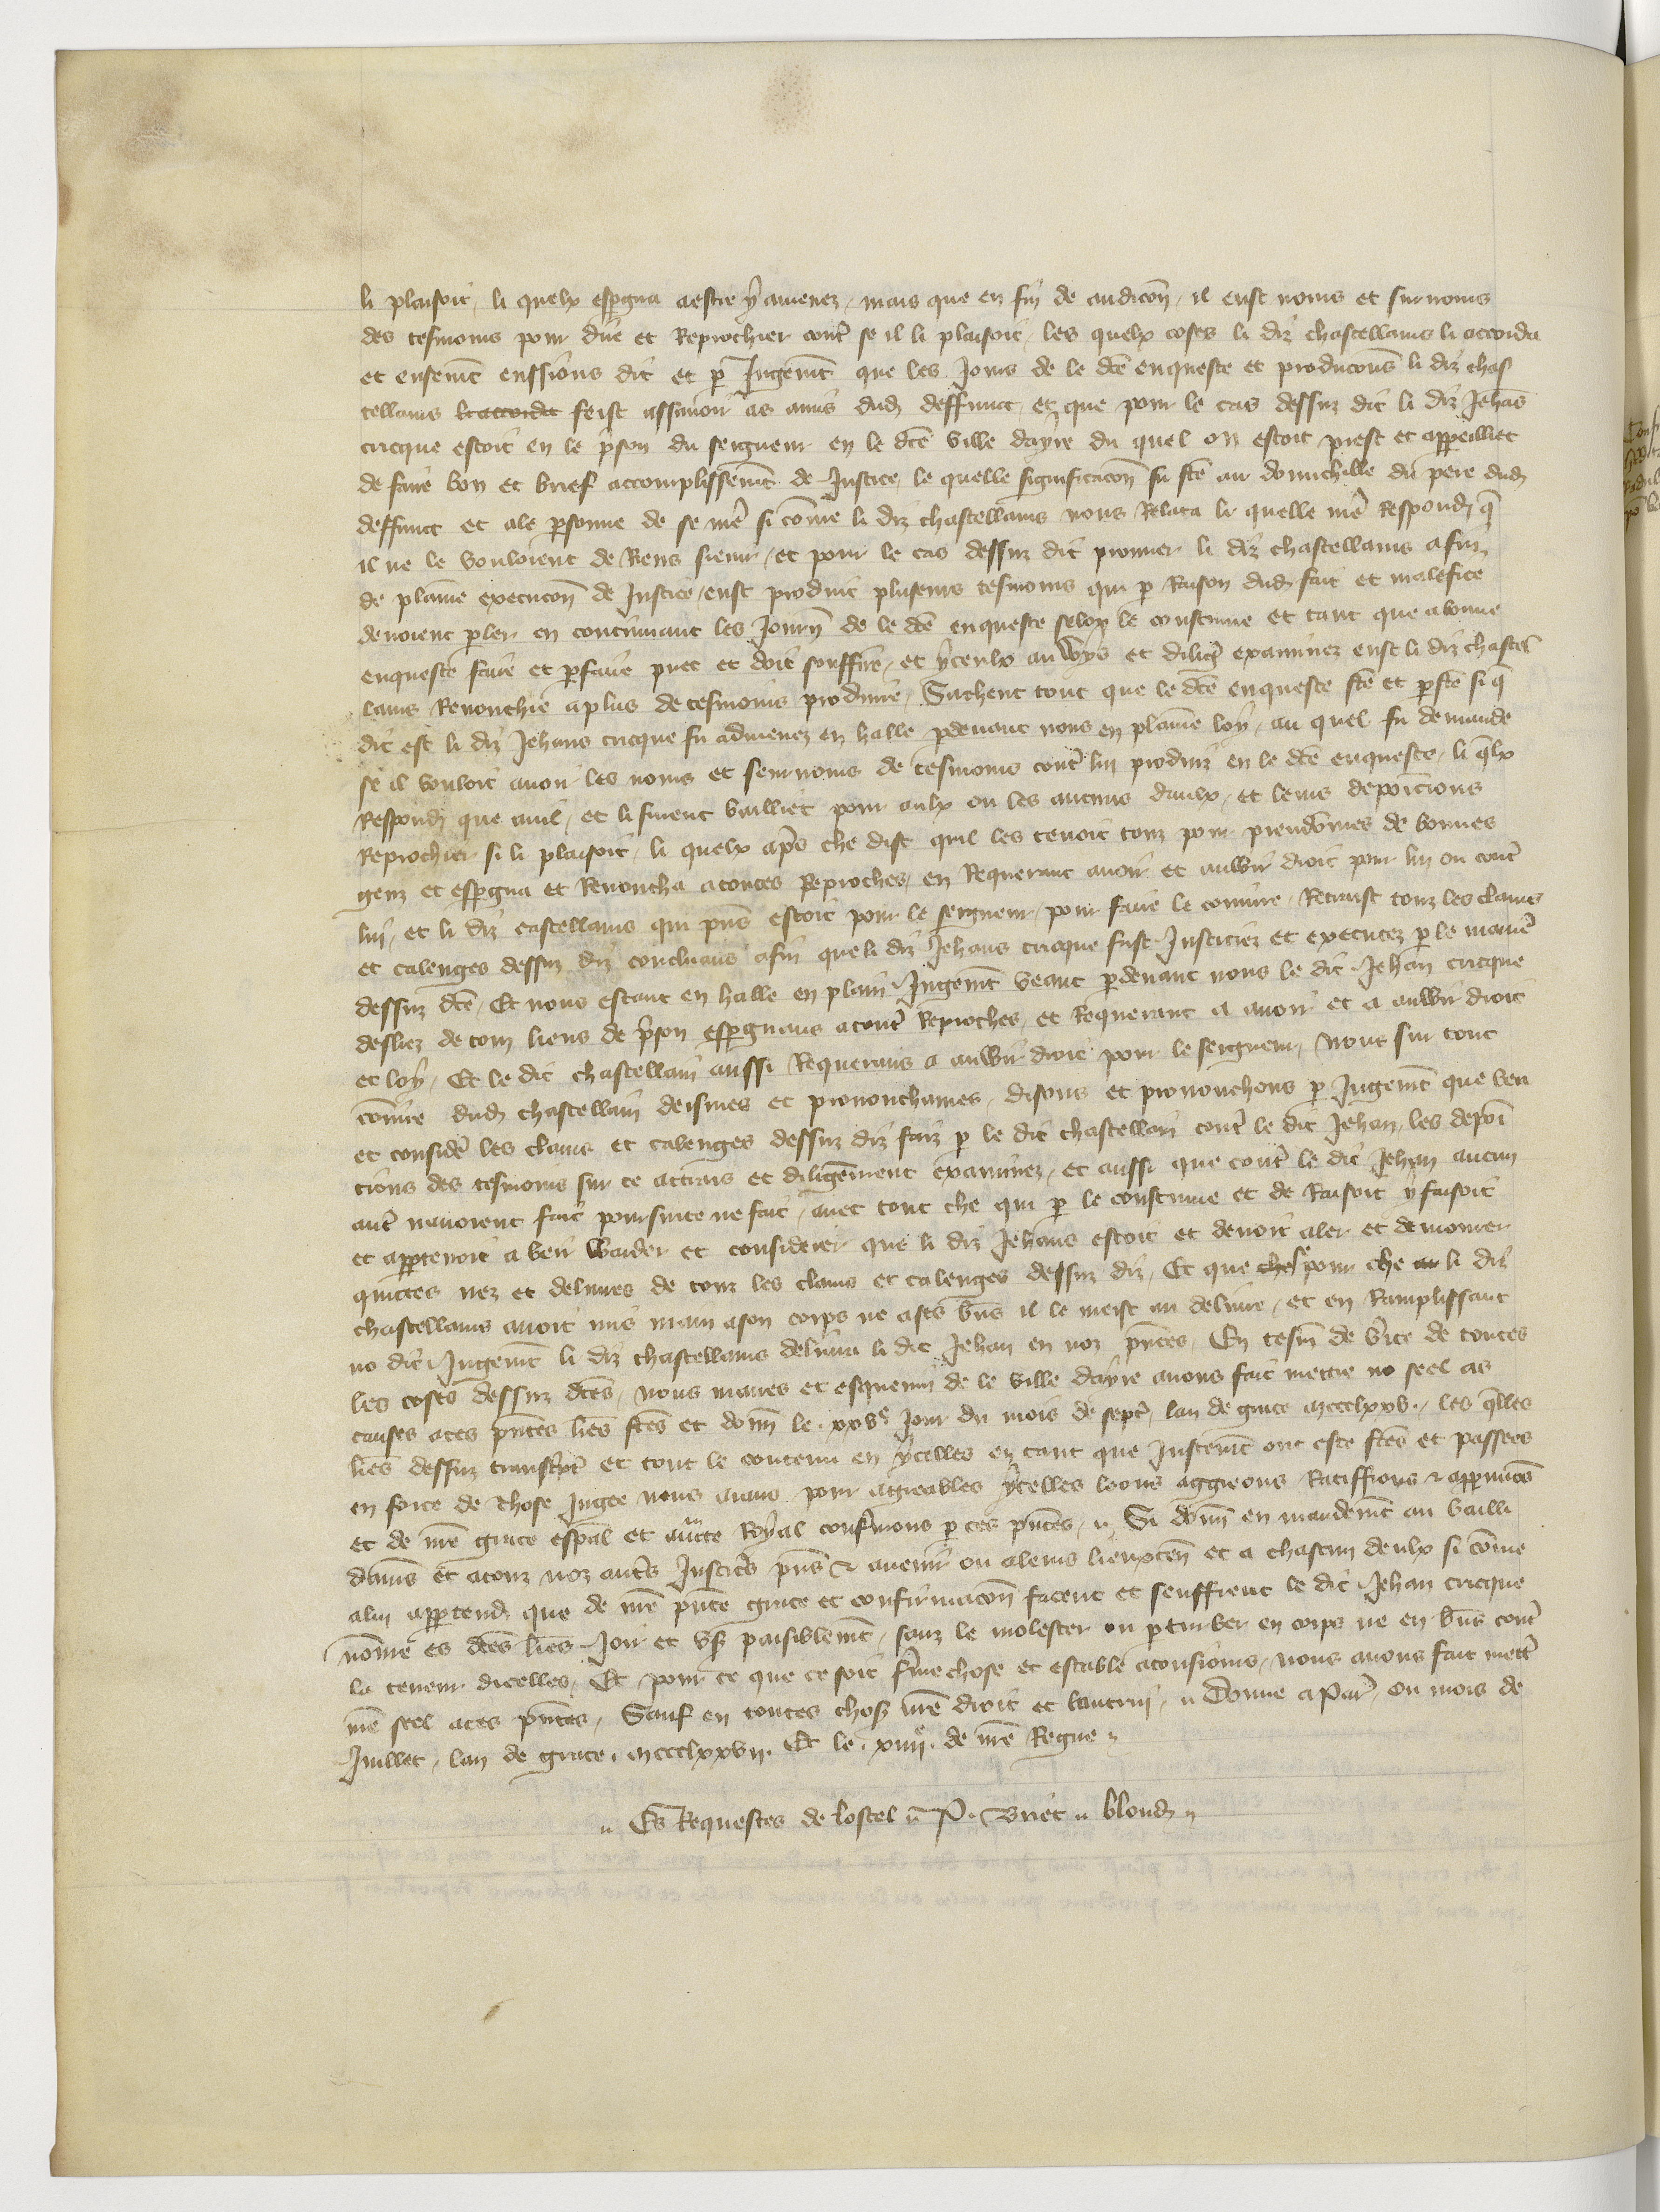 li plaisoit, li quelx espergna a estre y amenez, mais que en fin de audicõn, il eust noms et surnoms
des tesmoins pour dire et Reprochier cont̃ se il li plaisoit, les quelx coses li diz chastellains li accorda
et ensemt̃ enssions dit et p̱ Jugemt̃ que les Jours de le dc̃e enqueste et producõns li diz chas
tellains li accorda feist assavoir as amis dud̵ deffunct, et que pour le cas dessuz dit li diz Jehañ
cucque estoit en le p̃son du seigneur en le dc̃e ville dayre du quel on estoit prest et appeilliet
de faire bon et brief accomplissemt̃ de Justice, le quelle significacõn fu fc̃e au domichille du pere dud̵
deffunct et a le p̱sonne de se me᷑ si cõme li diz chastellains nous Relata li quelle me᷑ Respond̵ q̃
il ne le vouloient de Riens sievir, et pour le cas dessuz dit prouver li diz chastellains afin
de plaine execucõn de Justice, eust produit pluseurs tesmoins qui p̱ Raison dud̵ fait et malefice
devoient p̱ler en continuant les Journ̄ de le dc̃e enqueste selon le coustume et tant que a bonne
enqueste faire et p̱faire puet et doit souffire, et yceulx auwys et dilig̃ examinez eust li diz chastel
lains Renonchié a plus de tesmoins produire, Sachent tout que le dc̃e enqueste fc̃e et p̱fc̃e si q̃
dit est li diz Jehans cucque fu admenez en halle p̱devant nous en plaine loy, au quel fu demande
se il vouloit avoir les noms et seurnoms de tesmoins cont̃ lui produiz en le dc̃e enqueste, li q̃lx
Respond̵ que auil, et li furent bailliet pour aulx ou les aucuns daulx, et leurs deposicions
Reprochier si li plaisoit, li quelx ap̃s che dist quil les tenoit touz pour preudõmes de bonnes
genz et espergna et Renoncha a toutes Reproches, en Requerant avoir et auwir droit pour lui ou cont̃
lui, et li diz castellains qui p̃ns estoit pour le seigneur, pour faire le comûre, Retraist touz les clains
et calenges dessuz diz concluans afin que li diz Jehans cucque fust Justiciez et executez p̱ le manie᷑
dessuz dc̃e, Et nous estant en halle en plain Jugemt̃ veant p̱devant nous le dit Jehan cucque
desliez de touz liens de p̃son espergnans a tout̃ Reproches, et Requerant a avoir et a auwir droit
et loy, Et le dit chastellain aussi Requerans a auwir droit pour le seigneur, Nous sur tout
comûre dud̵ chastellain deismes et prononchames, disons et prononchons p̱ Jugemt̃ que veu
et considere᷑ les clains et calenges dessuz diz faiz p̱ le dit chastellain cont̃ le dit Jehan, les deposi
tions des tesmoins sur ce attrais et diligẽment examinez, et aussi que cont̃ le dit Jehan aucun
aut̃ navoient fait poursuite ne fait, avec tout che qui p̱ le coustume et de Raison y faisoit
et app̱tenoit a veir warder et considerer que li diz Jehans estoit et devoit aler et demourer
quittes nez et delivres de touz les clains et calenges dessuz diz, Et que ches se pour che au li diz
chastellains avoit mis main a son corps ne a ses bñs il le meist au delivre, et en Ramplissant
no dit Jugemt̃ li diz chastellains delivra li dit Jehan en noz p̃nces, En tesm̃ de v̾ite de toutes
les coses dessuz dc̃es, nous maires et eschevin de le ville dayre avons fait mettre no seel as
causes a ces p̃ntes lr̃es fc̃es et donñ le .xxv.e Jour du mois de sept̃, lan de grace mccclxxv., les q̃lles
lr̃es dessuz transcript̃ et tout le contenu en ycelles en tant que Justemt̃ ont este fc̃es et passees
en force de chose Jugee nous avans pour agreables ycelles loons aggreons Ratiffions ⁊ approuvõs
et de nr̃e grace esp̃al et auct̃e Royal confermons p̱ ces p̃ntes, Si donñ en mandemt̃ au bailli
damiñs et a touz noz aut̃s Justic̃s p̃ns ⁊ avenir ou a leurs lieuxteñ et a chascun deulx si cõme
a lui app̱tend̵ que de nr̃e p̃nte grace et confirmacõn facent et seuffrent le dit Jehan cucque
nõme es dc̃es lr̃es Joir et usẽ paisiblemt̃, sanz le molester ou p̱turber en corps ne en biñs cont̃
la teneur dicelles, Et pour ce que ce soit ferme chose et estable a tousiours, nous avons fait mett̃
nr̃e seel a ces p̃ntes, Sauf en toutes chos̃ nr̃e droit et lautrui, Donne a Par̃, ou mois de
Juillet, lan de grace mccclxxvii. Et le .xiiii.e de nr̃e Regne
Es Requestes de lostel P. Briet blond̵